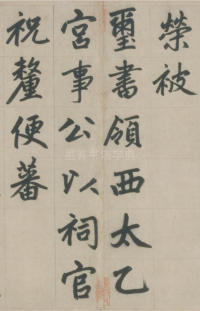 榮被
璽書領西太乙
宮事公以祠官
祝釐便蕃